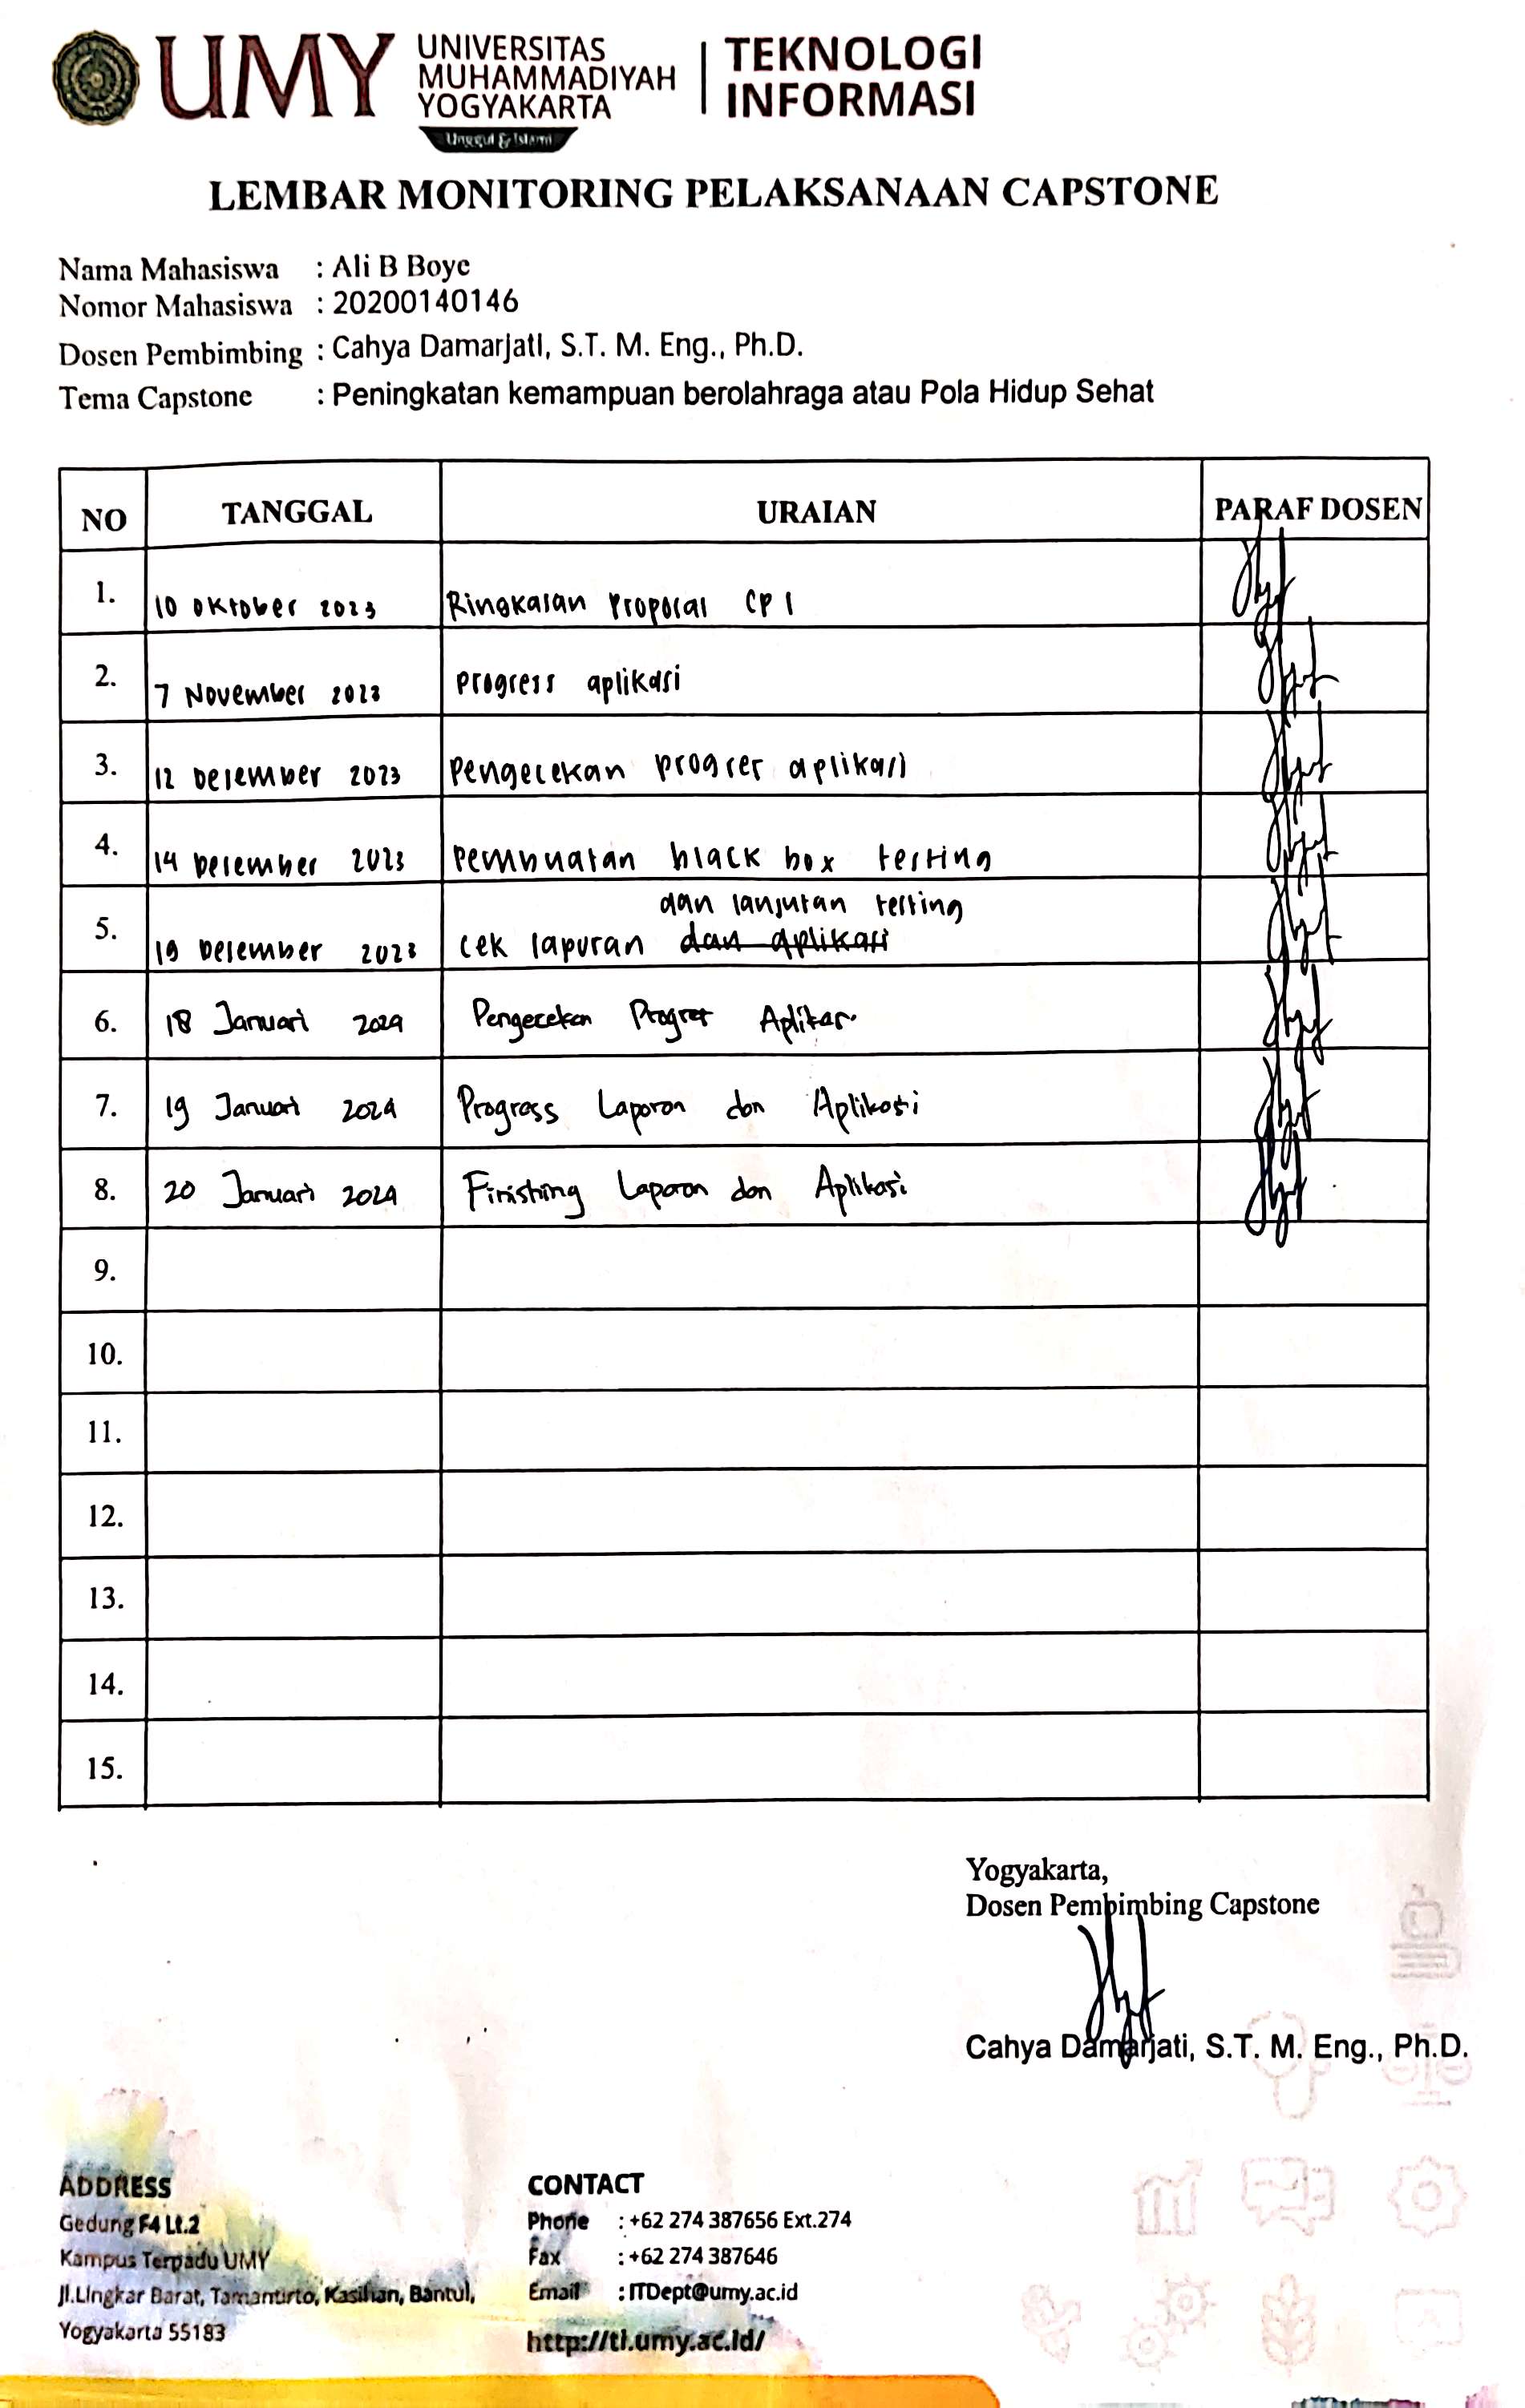 UMY
UNIVERSITAS
MUHAMMADIYAH
YOGYAKARTA
Unggul & Islami
TEKNOLOGI
INFORMASI
LEMBAR MONITORING PELAKSANAAN CAPSTONE
Nama Mahasiswa : Ali B Boye
Nomor Mahasiswa : 20200140146
Dosen Pembimbing : Cahya Damarjati, S.T. M. Eng., Ph.D.
Tema Capstone : Peningkatan kemampuan berolahraga atau Pola Hidup Sehat
NO TANGGAL URAIAN PARAF DOSEN
1. 10 Oktober 2023 Ringkasan Proposal CP 1
2. 7 November 2023 progress aplikasi
3. 12 Desember 2023 Pengecekan progres aplikasi
4. 14 Desember 2023 Pembuatan black box testing
dan lanjutan testing
5. 19 Desember 2023 cek lapuran dan aplikasi
6. 18 Januari 2024 Pengecekan Progres Aplikasi
7. 19 Januari 2024 Progress Laporan dan Aplikasi
8. 20 Januari 2024 Finishing Laporan dan Aplikasi
9.
10.
11.
12.
13.
14.
15.
Yogyakarta,
Dosen Pembimbing Capstone
Cahya Damarjati, S.T. M. Eng., Ph.D.
ADDRESS
Gedung F4 Lt.2
Kampus Terpadu UMY
Jl.Lingkar Barat, Tamantirto, Kasihan, Bantul,
Yogyakarta 55183
CONTACT
Phone : +62 274 387656 Ext.274
Fax : +62 274 387646
Email : ITDept@umy.ac.id
http://ti.umy.ac.id/